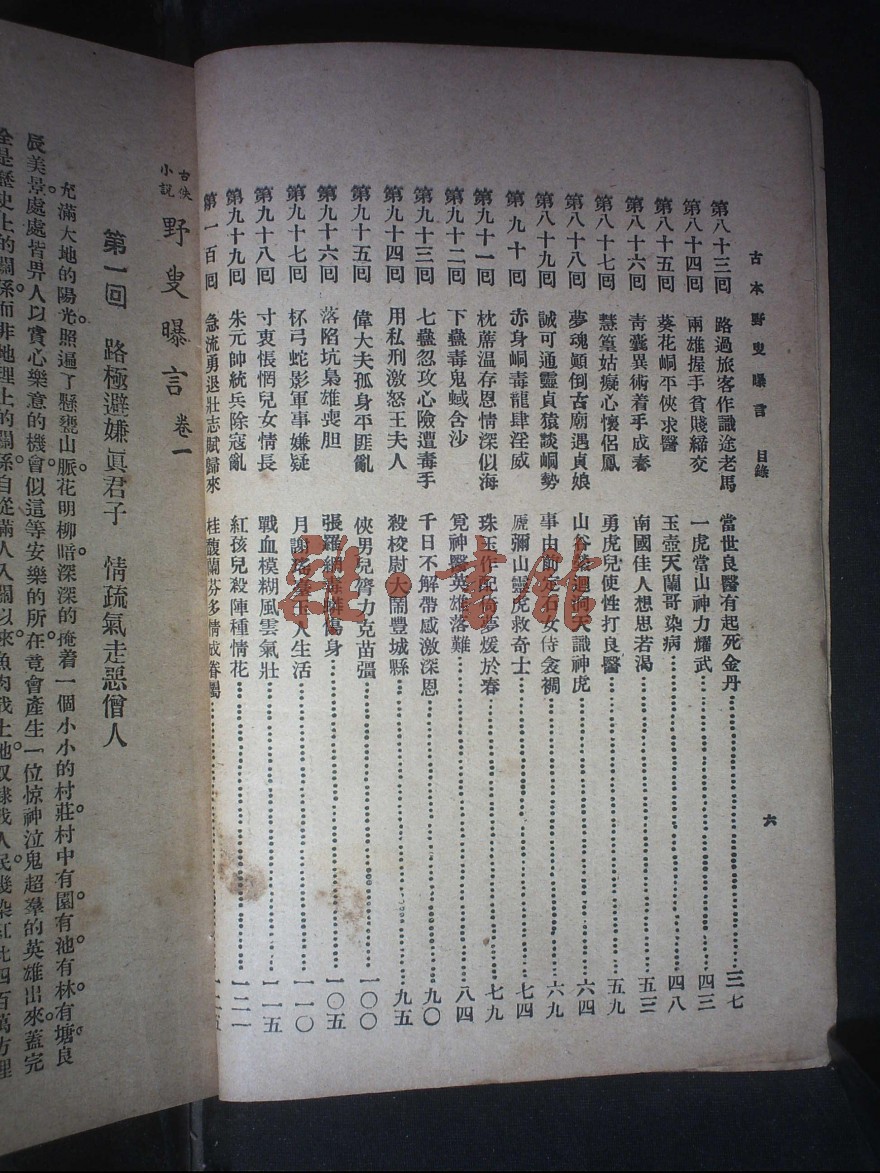 古本野叟曝言 目錄 六
第八十三回 路過旅客作識途老馬 當世良醫有起死金丹 三七
第八十四回 兩雄握手貧賤締交 一虎當山神力耀武 四三
第八十五回 葵花峒平俠求醫 玉壺天蘭哥染病 四八
第八十六回 靑囊異術着手成春 南國佳人想思若渴 五三
第八十七回 慧篁姑癡心懷侶鳳 勇虎兒使性打良醫 五九
第八十八回 夢魂顚倒古廟遇貞娘 山谷縈迴洞天識神虎 六四
第八十九回 誠可通靈貞猿談峒勢 事由前定石女侍衾裯 六九
第九十回 赤身峒毒龍肆淫威 彌山靈虎救奇士 七四
第九十一回 枕蓆温存恩情深似海 珠玉作配倚夢煖於春 七九
第九十二回 下蠱毒鬼蜮含沙 覓神醫英雄落難 八四
第九十三回 七蠱忍攻心險遭毒手 千日不解帶感激深恩 九〇
第九十四回 用私刑激怒王夫人 殺校尉大鬧豐城縣 九五
第九十五回 偉大夫孤身平匪亂 俠男兒膂力克苗彊 一〇〇
第九十六回 落陷坑梟雄喪胆 張羅網毒蟒傷身 一〇五
第九十七回 杯弓蛇影軍事嫌疑 月謝瑤臺玉人生活 一一〇
第九十八回 寸衷悵惘兒女情長 戰血模糊風雲氣壯 一一五
第九十九回 朱元帥統兵除寇亂 紅孩兒殺陣種情花 一二一
第一百回 急流勇退壯志賦歸來 桂馥蘭芬多情成眷屬 一二五
古俠小說 野叟曝言 卷一
第一回 路極避嫌眞君子 情疏氣走惡僧人
充滿大地的陽光。照遍了懸甕山脈。花明柳暗。深深的掩着一個小小的村莊。村中有園有池。有林有塘。良
辰美景。處處皆畀人以賞心樂意的機會。似這等安樂的所在。竟會產生一位惊神泣鬼超羣的英雄出來。蓋完
全是歷史上的關係。而非地理上的關係。自從滿人入關以來。魚肉我土地。奴隸我人民。
雜·書館